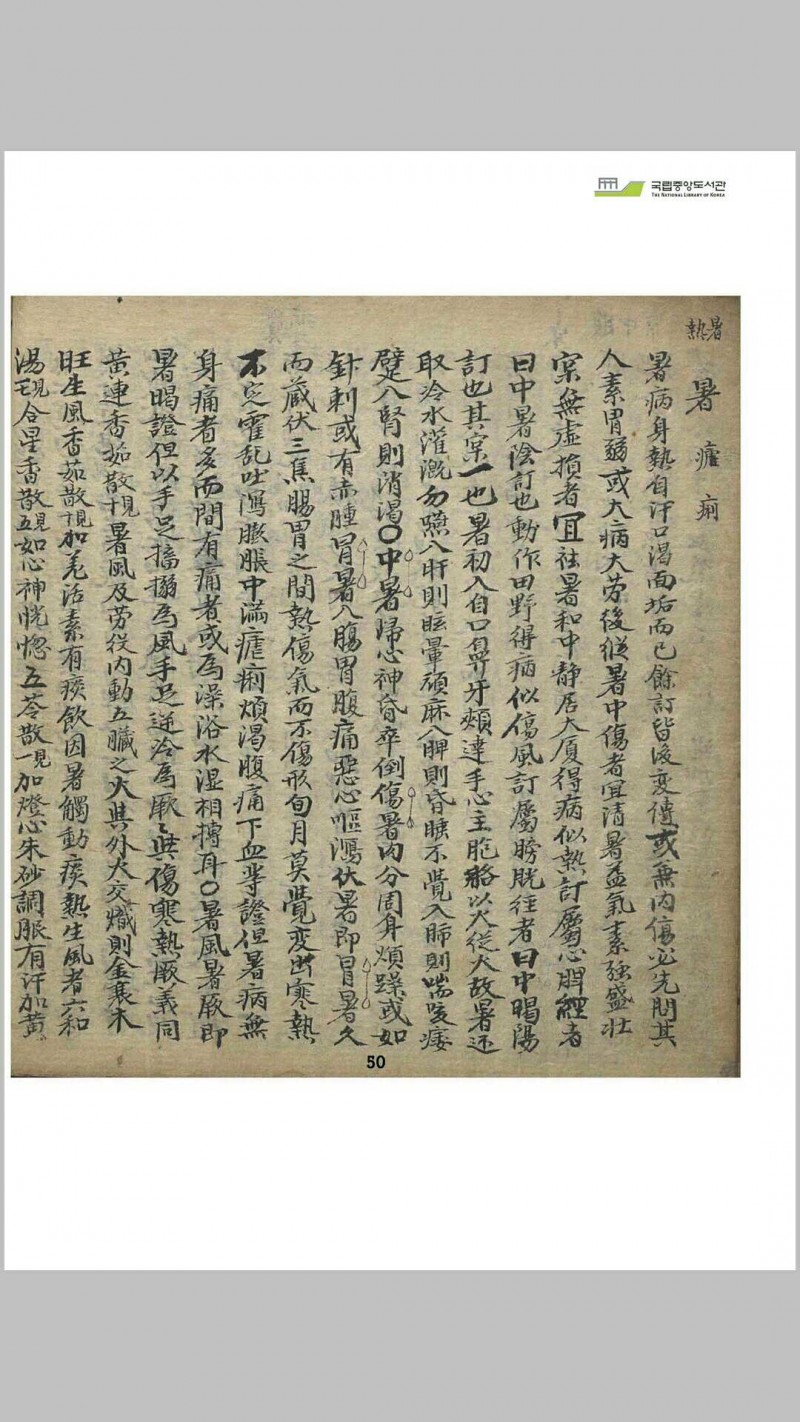 국립중앙도서관
THE NATIONAL LIBRARY OF KOREA
暑熱
暑瘧痢
暑病身熱自汗口渴面垢而已餘訂皆後変傳或無内傷必先問其
人素胃弱或大病大劳後縱暑中傷者宜清暑益氣素強盛壮
実無虚損者宜祛暑和中静居大厦得病似熱訂屬心脾經者
曰中暑陰訂也動作田野得病似傷風訂屬膀胱往者曰中暍陽
訂也其実一也暑初入自口鼻牙頬達手心主胞絡以火従火故暑还
取冷水灌漑勿嚥入肝則眩暈頑麻入脾則昏瞶不覺入肺則喘咳痿
躄入腎則消渴〇中暑歸心神昏卒倒傷暑肉分周身煩躁或如
針刺或有赤腫冒暑入腸胃腹痛惡心嘔瀉伏暑即冒暑久
而藏伏三焦腸胃之間熱傷氣而不傷形旬月莫覺変出寒熱
不定霍乱吐瀉膨脹中滿瘧痢煩渴腹痛下血等證但暑病無
身痛者多而間有痛者或為澡浴水湿相搏耳〇暑風暑厥即
暑暍證但以手足搐搦為風手足逆冷為厥〻與傷寒熱厥義同
黃連香茹散十見暑風及劳役内動五臟之火與外火交熾則金衰木
旺生風香茹散十見加羌活素有痰飲因暑觸動痰熱生風者六和
湯二見合星香散五見如心神恍惚五苓散一見加燈心朱砂調服有汗加黃
50